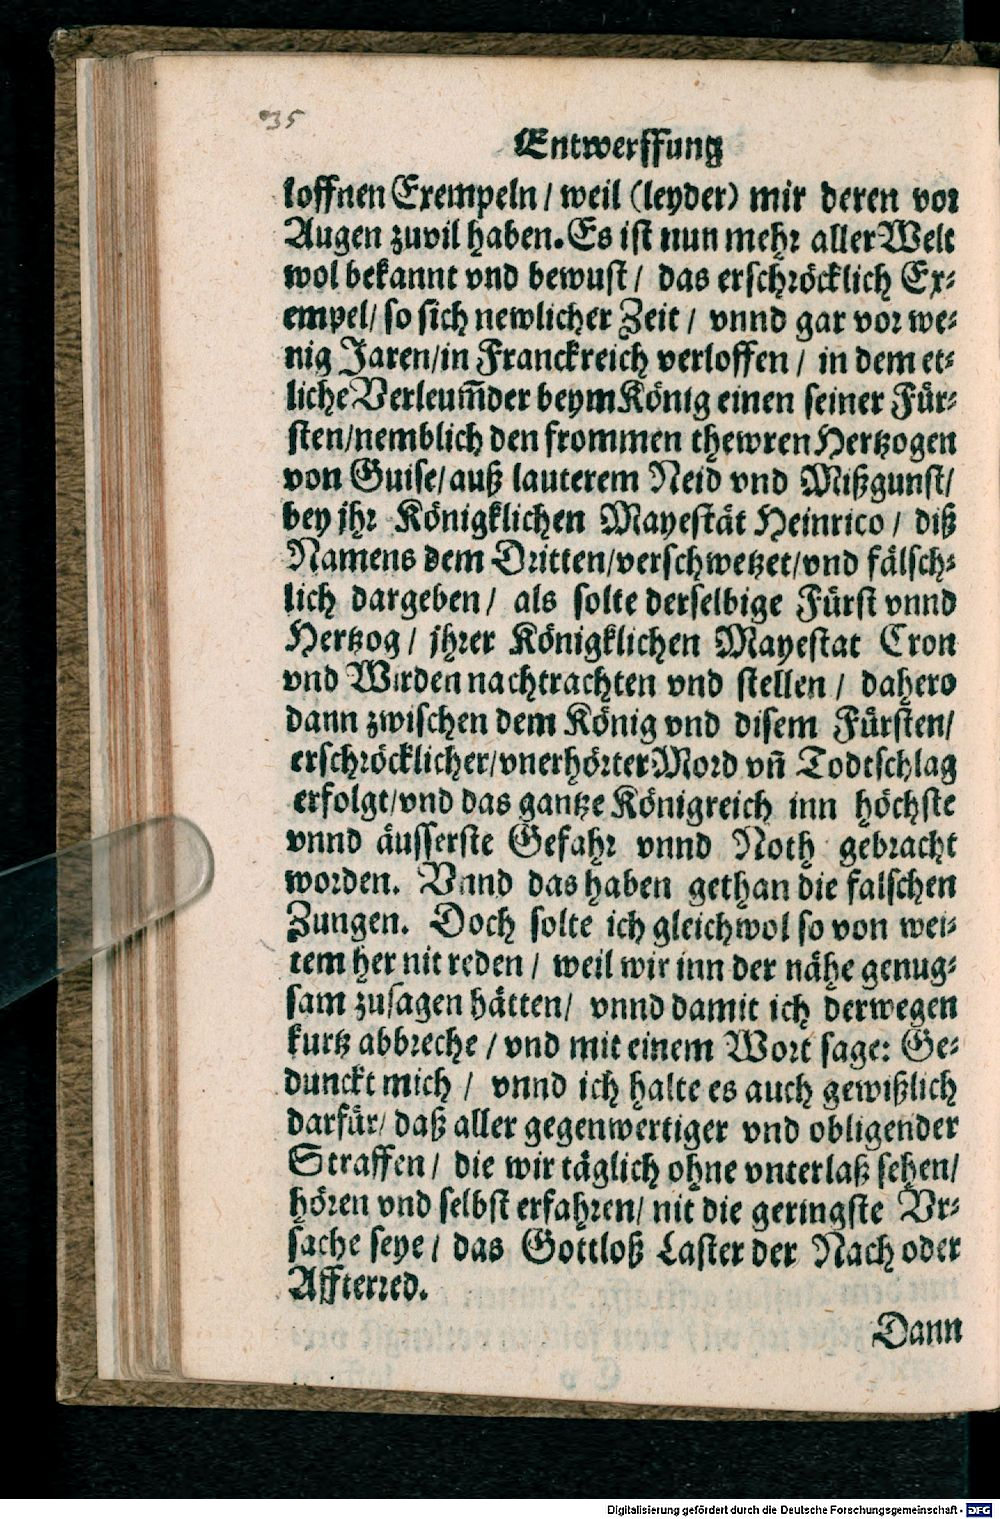 35
Entwerffung
loffnen Exempeln / weil (leyder) mir deren vor
Augen zuvil haben. Es ist nun mehr aller Welt
wol bekannt vnd bewust / das erschröcklich Ex-
empel / so sich newlicher Zeit / vnnd gar vor we-
nig Jaren / in Franckreich verloffen / in dem et-
liche Verleum̃der beym König einen seiner Für-
sten / nemblich den frommen thewren Hertzogen
von Guise / auß lauterem Neid vnd Mißgunst /
bey jhr Königklichen Mayestät Heinrico / diß
Namens dem Dritten / verschwetzet / vnd fälsch-
lich dargeben / als solte derselbige Fürst vnnd
Hertzog / jhrer Königklichen Mayestat Cron
vnd Wirden nachtrachten vnd stellen / dahero
dann zwischen dem König vnd disem Fürsten /
erschröcklicher / vnerhörter Mord vñ Todtschlag
erfolgt / vnd das gantze Königreich inn höchste
vnnd äusserste Gefahr vnnd Noth gebracht
worden. Vnnd das haben gethan die falschen
Zungen. Doch solte ich gleichwol so von wei-
tem her nit reden / weil wir inn der nähe genug-
sam zusagen hätten / vnnd damit ich derwegen
kurtz abbreche / vnd mit einem Wort sage: Ge-
dunckt mich / vnnd ich halte es auch gewißlich
darfür / daß aller gegenwertiger vnd obligender
Straffen / die wir täglich ohne vnterlaß sehen /
hören vnd selbst erfahren / nit die geringste Vr-
sache seye / das Gottloß Laster der Nach oder
Affterred.
Dann
Digitalisierung gefördert durch die Deutsche Forschungsgemeinschaft - DFG